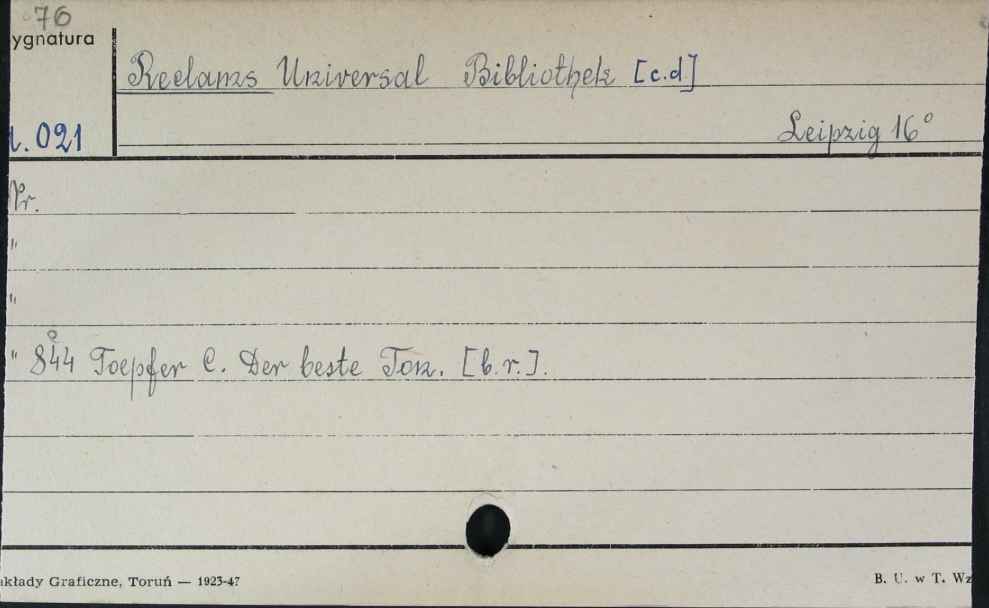 76
ygnatura
Reclams Universal Bibliothek [c.d.]
021
Leipzig 16°
Nr.
"
"
" 844 Toepfer C. Der beste Ton. [b.r.].
akłady Graficzne, Toruń — 1923-47
B. U. w T. Wz